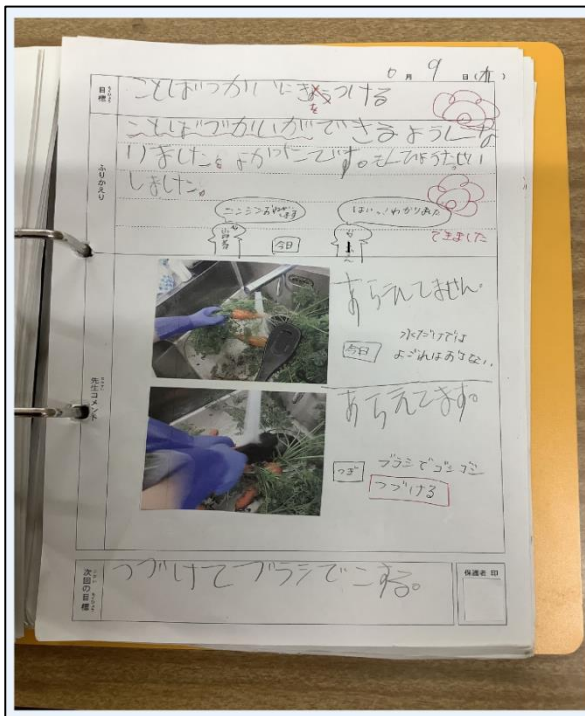 6月9日(水)
目標
ことばづかいにきをつける
ふりかえり
ことばづかいができるようにな
りました。よかったです。
しました。
ニンジンおねがいします
はいっ!わかりました
今日
できました
先生コメント
あらえてません。
今日
水だけでは
よごれはおちない。
あらえてます。
つぎ
ブラシでゴシゴシ
つづける
次回の目標
つづけてブラシでこする。
保護者 印